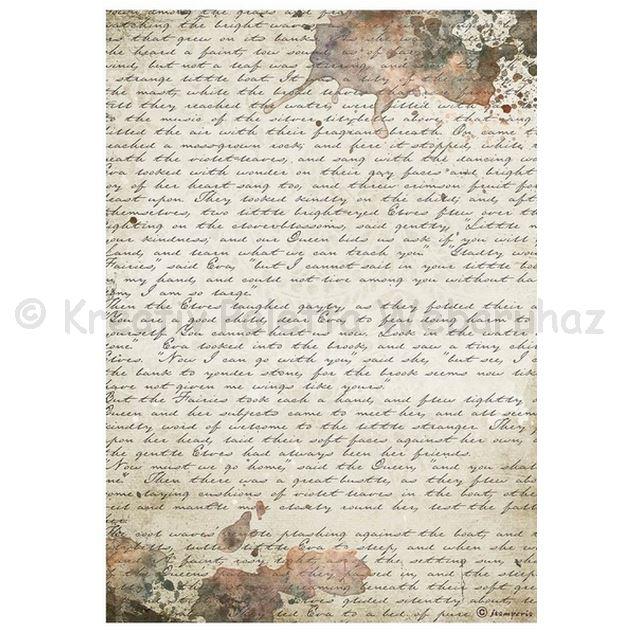 down among the grass
catching the bright water
that grew on its banks
she heard a faint, low sound, as of far
wind, but not a leaf was stirring, and
strange little boat. It
the mast, while the broad
till they reached the water,
to the music of the silver lily-bells above, that rang
filled the air with their fragrant breath. On came t
reached a moss-grown rock; and here it stopped, while
eath the violet-leaves, and sang with the dancing wa
Eva looked with wonder on their gay faces and bright
oy of her heart sang too, and threw crimson fruit for
feast upon. They looked kindly on the child, and, aft
themselves, two little bright-eyed Elves flew over th
ighting on the clover-blossoms, said gently, "Little m
your kindness; and our Queen bids us ask if you will
Land, and learn what we can teach you." "Gladly wou
Fairies," said Eva, "but I cannot sail in your little bo
my hand, and could not live among you without ha
ny, I am so large."
Then the Elves laughed gayly, as they folded their
You are a good child, dear Eva, to fear doing harm to
yourself. You cannot hurt us now. Look in the water
one." Eva looked into the brook, and saw a tiny chi
Elves. "Now I can go with you," said she, "but see, I c
the bank to yonder stone, for the brook seems now like
have not given me wings like yours."
But the Fairies took each a hand, and flew lightly o
Queen and her subjects came to meet her, and all seem
kindly word of welcome to the little stranger. They
pon her head, laid their soft faces against her own, a
the gentle Elves had always been her friends.
"Now must we go home," said the Queen, "and you shal
me." Then there was a great bustle, as they flew abo
ome laying cushions of violet leaves in the boat, othe
veil and mantle more closely round her, lest the fall
her.
The cool waves' plashing against the boat, and
Eva to sleep, and when she w
faint, rosy light the setting sun,
the Queen's they passed in, and the
beneath their soft green
glided silently about,
Eva to a bed of pure
© stamperia
© Kreatív Paletta Webáruház